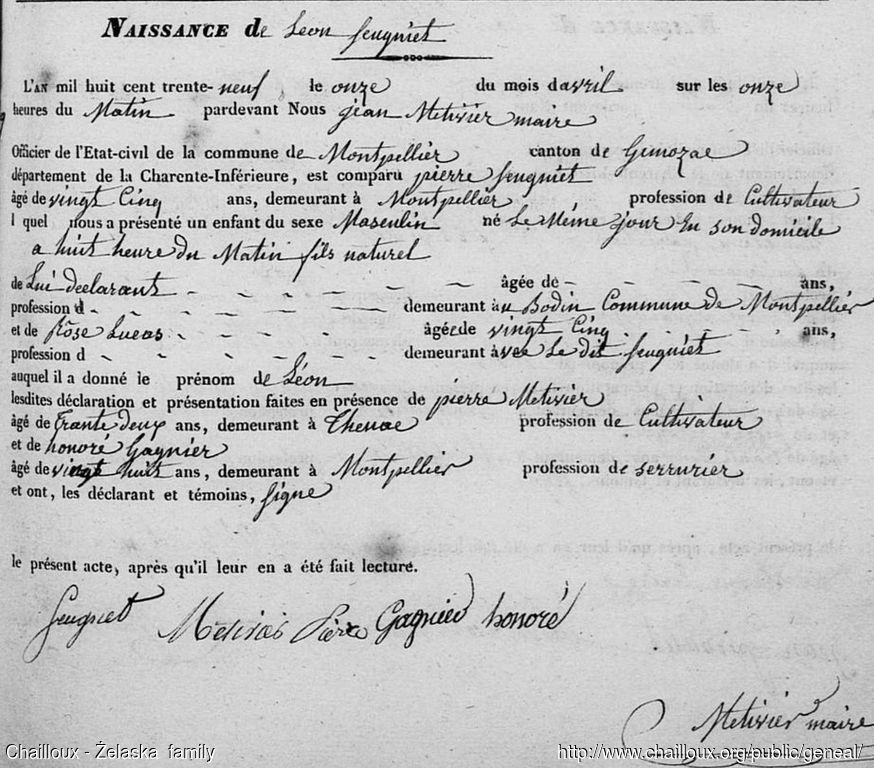 NAISSANCE de Leon feugniet
L'AN mil huit cent trente-neuf le onze du mois davril sur les onze
heures du Matin pardevant Nous jean Metivier maire
Officier de l'Etat-civil de la commune de Montpellier canton de Gemozac
département de la Charente-Inférieure, est comparu pierre feugniet
âgé de vingt Cinq ans, demeurant à Montpellier profession de Cultivateur
l quel nous a présenté un enfant du sexe Masculin né Le Même jour En son domicile
a huit heure du Matin fils naturel
de Lui declarant - - - - - - - âgée de - - - - - - ans,
profession d - - - - - - - - demeurant au Bodin Commune de Montpellier
et de Rôse Lucas - - - - - âgée de vingt Cinq - - - - - ans,
profession d - - - - - - - demeurant avec Le dit feugniet
auquel il a donné le prénom de Léon
lesdites déclaration et présentation faites en présence de pierre Metivier
âgé de Trante deux ans, demeurant à Thenac profession de Cultivateur
et de honoré Gagnier
âgé de vingt huit ans, demeurant à Montpellier profession de serrurier
et ont, les déclarant et témoins, signe
le présent acte, après qu'il leur en a été fait lecture.
feugniet Metivier Pierre Gagnier honoré
Metivier maire
Chailloux - Želaska family http://www.chailloux.org/public/geneal/